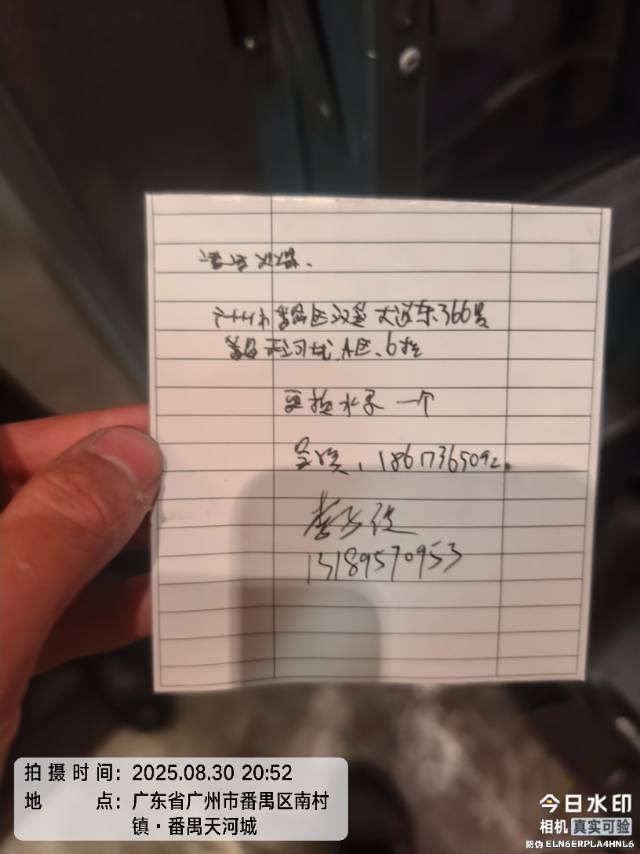 广州市番禺区汉溪大道东366号
番禺天河城A区.6栋
更换水泵一个
13189570953
拍摄时间：2025.08.30 20:52
地 点：广东省广州市番禺区南村
镇·番禺天河城
今日水印
相机 真实可验
防伪 ELN6ERPLA4HNL6